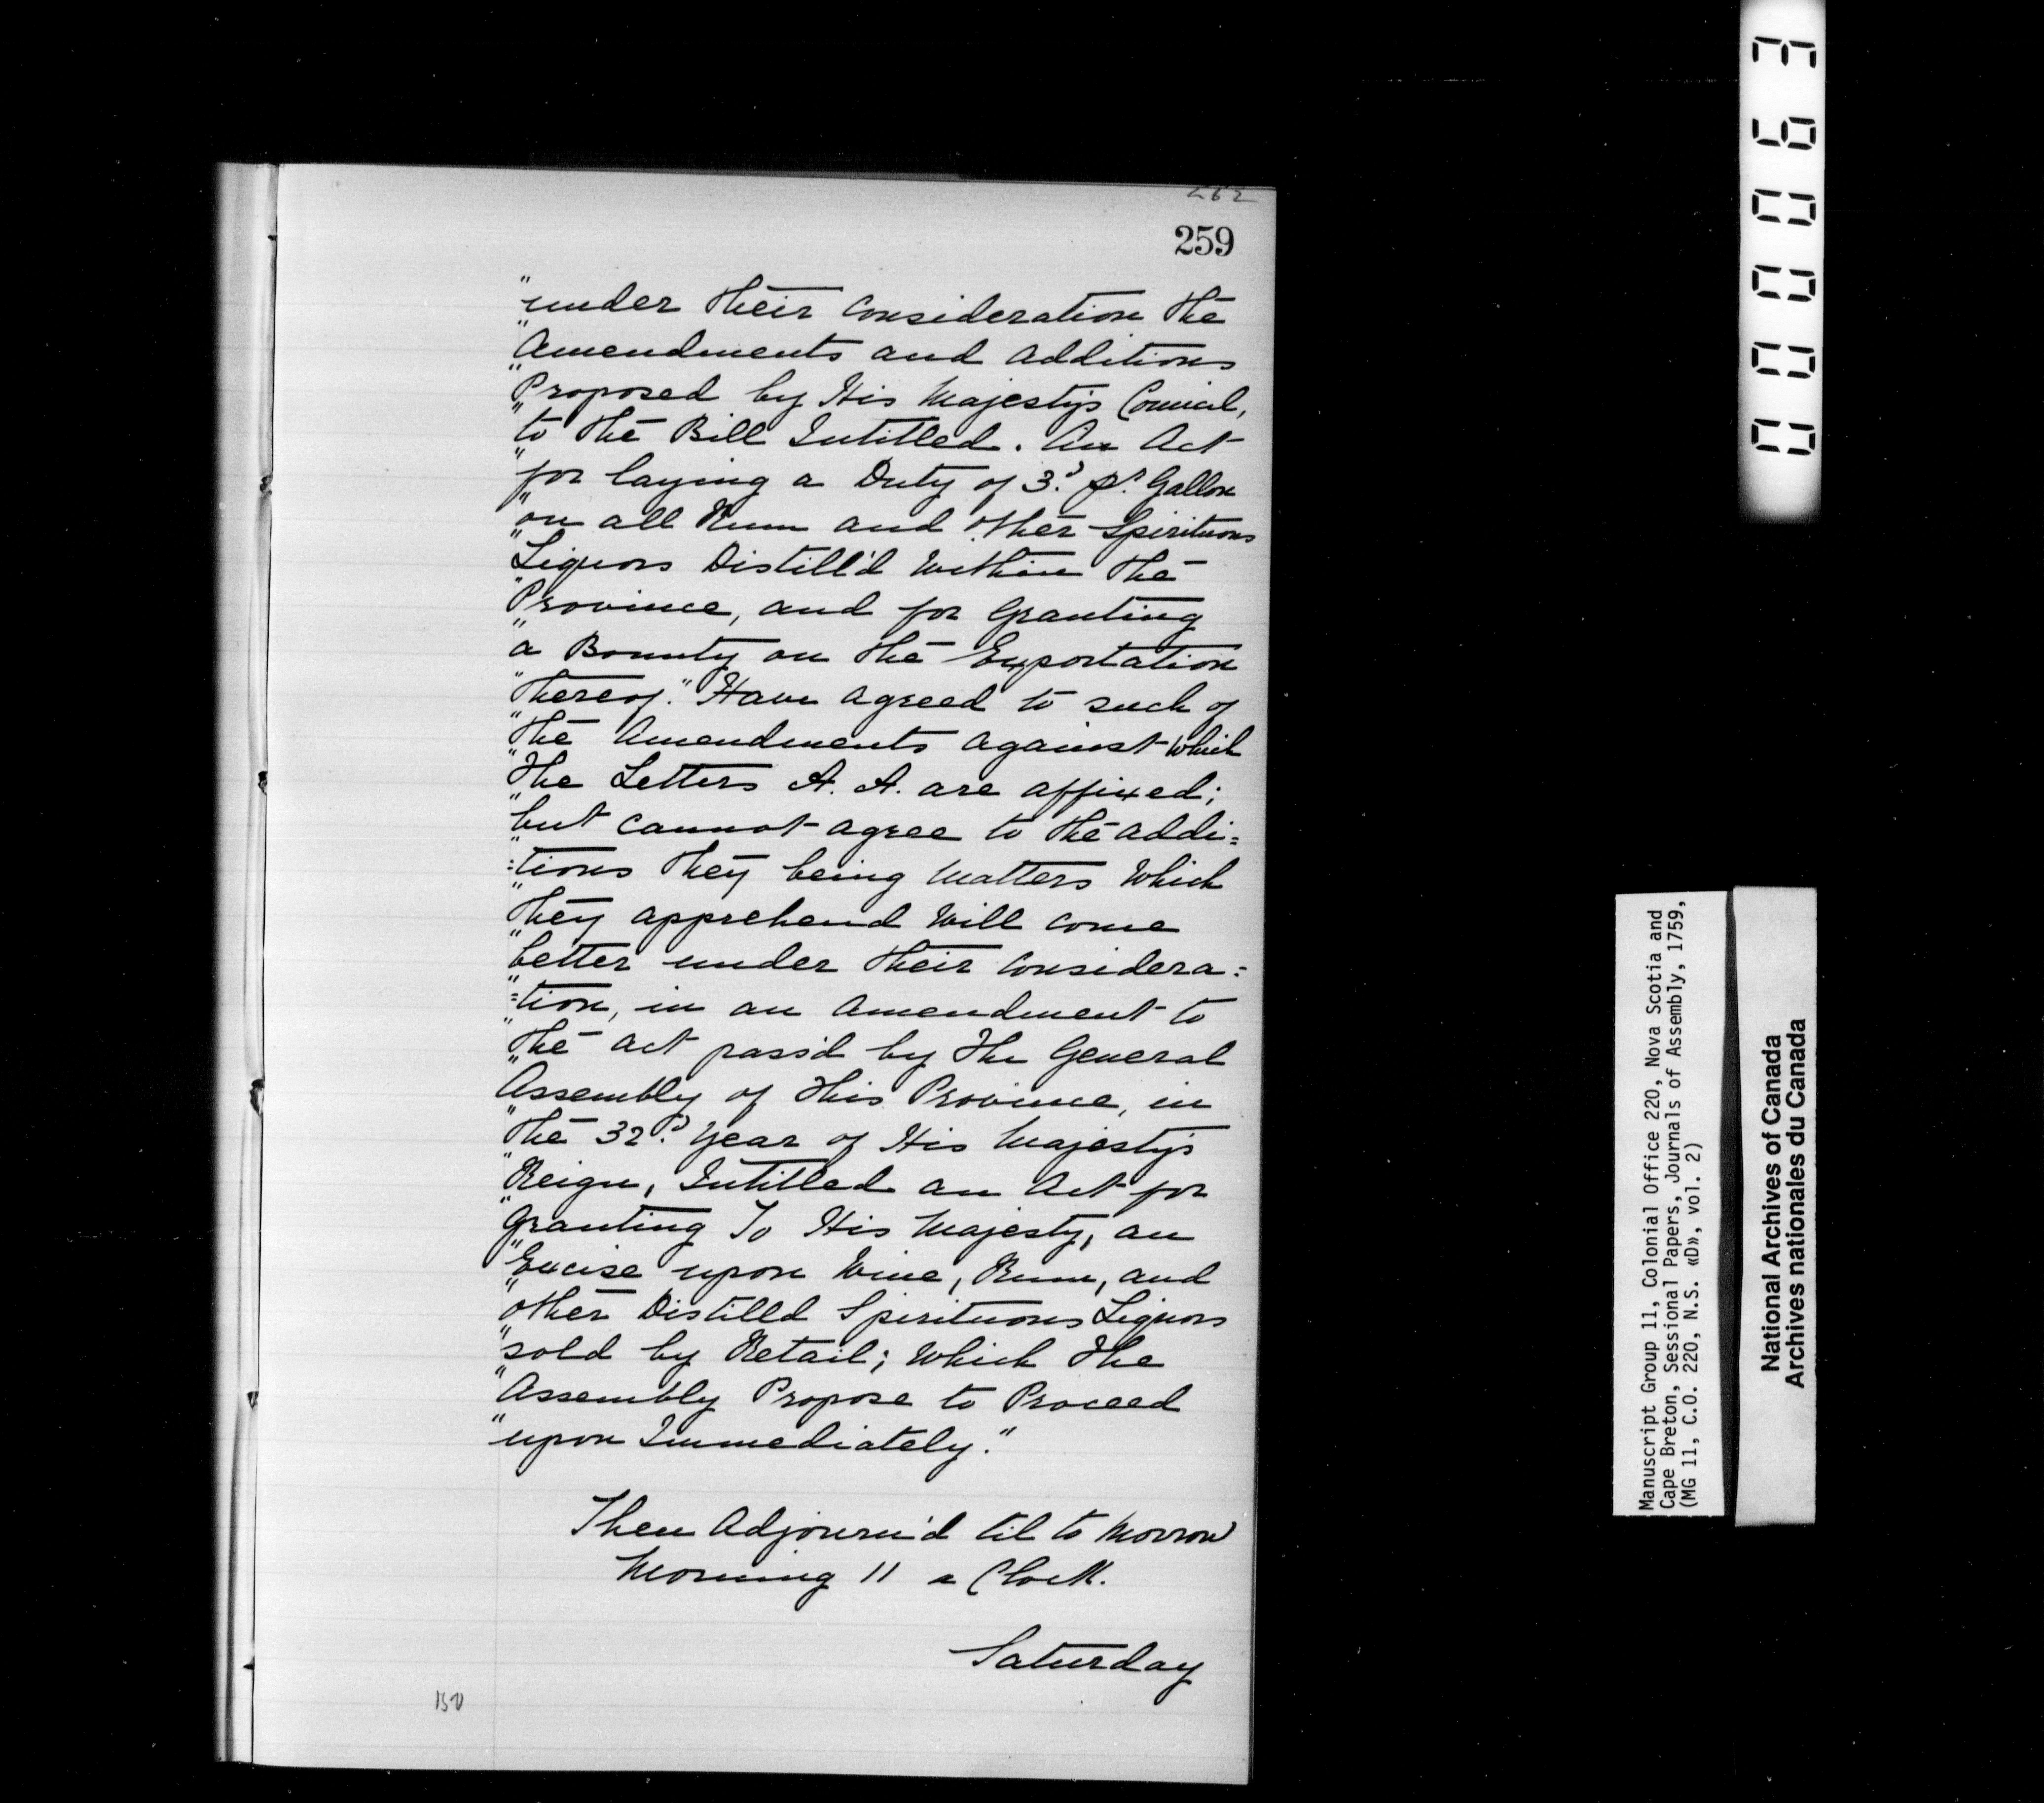 262
259
"under their Consideration the
"Amendments and Additions
"Proposed by His Majestys Council,
"to the Bill Intitled. An Act
"for laying a Duty of 3.d pr. Gallon
"on all Rum and other Spirituous
"Liquors Distill'd Within the
"Province, and for Granting
"a Bounty on the Exportation
"thereof." Have agreed to such of
"the Amendments against which
"the Letters A. A. are affixed;
"but Cannot agree to the addi=
"=tions they being Matters Which
"they apprehend Will Come
"better under their Considera=
"=tion, in an Amendment to
"the Act pass'd by the General
"Assembly of this Province, in
"the 32.d Year of His Majestys
"Reign, Intitled an Act for
"Granting To His Majesty, an
"Excise upon Wine, Rum, and
"other Distilld Spirituous Liquors
"sold by Retail; Which the
"Assembly Propose to Proceed
"upon Immediately."
Then Adjourn'd til to Morrow
Morning 11 a Clock.
Saturday
000063
Manuscript Group 11, Colonial Office 220, Nova Scotia and
Cape Breton, Sessional Papers, Journals of Assembly, 1759,
(MG 11, C.O. 220, N.S. «D», vol. 2)
National Archives of Canada
Archives nationales du Canada